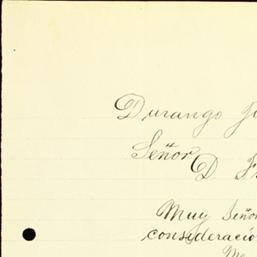 Durango Ju
Señor
D. F
Muy Señor
consideració